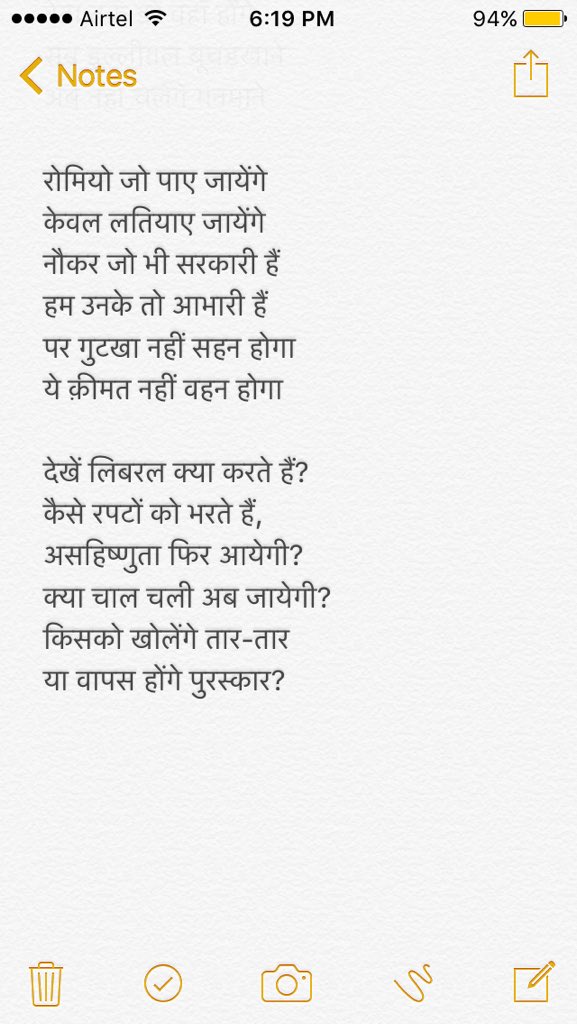 Airtel 6:19 PM 94%
Notes
रोमियो जो पाए जायेंगे
केवल लतियाए जायेंगे
नौकर जो भी सरकारी हैं
हम उनके तो आभारी हैं
पर गुटखा नहीं सहन होगा
ये क़ीमत नहीं वहन होगा
देखें लिबरल क्या करते हैं?
कैसे रपटों को भरते हैं,
असहिष्णुता फिर आयेगी?
क्या चाल चली अब जायेगी?
किसको खोलेंगे तार-तार
या वापस होंगे पुरस्कार?